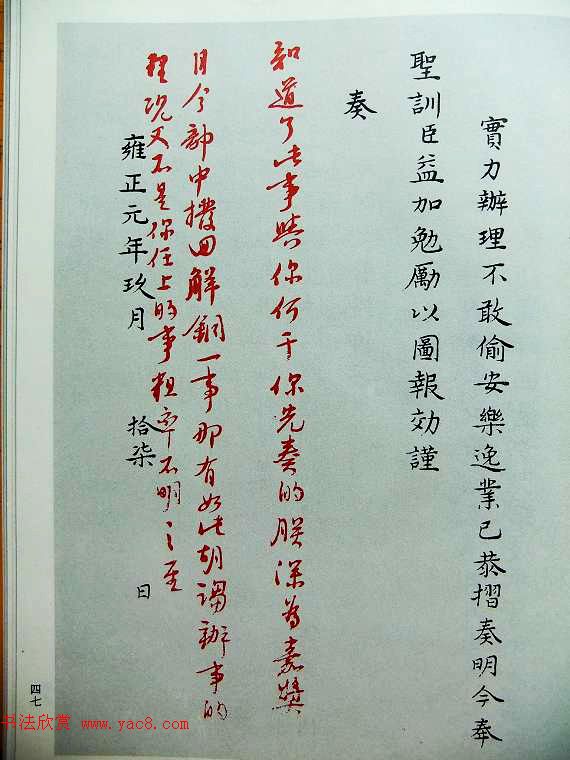 實力辦理不敢偷安樂逸業已恭摺奏明今奉
聖訓臣益加勉勵以圖報効謹
奏
知道了此事與你何干你先奏的朕深為嘉獎
目今部中撥回解銅一事那有如此胡謅辦事的
程況又不是你任上的事粗率不明之至
雍正元年玖月拾柒日
四七
书法欣赏 www.yac8.com